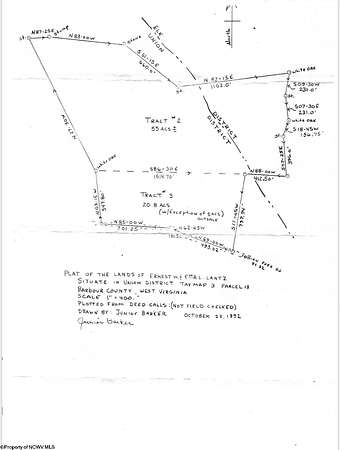 North
ELK
UNION
N87-25E
stone
N83-00W
stone
white oak
N 87-15E
1102.0'
S09-30W
230.0'
S07-30E
231.0'
white oak
S18-45W
156.75'
DISTRICT
DISTRICT
TRACT #2
55 ACS ±
white oak
S86-30E
N88-00W
412.50'
TRACT #3
20.8 ACS
(w/exception of 5acs)
outsale
N85-00W
701.25
PLAT OF THE LANDS OF ERNEST W. ETAL LANTZ
SITUATE IN UNION DISTRICT TAX MAP 3 PARCEL 18
BARBOUR COUNTY, WEST VIRGINIA
SCALE 1" = 400'
PLOTTED FROM DEED CALLS: (NOT FIELD CHECKED)
DRAWN BY: JUNIOR BARKER OCTOBER 22, 1992
Junior Barker
©Property of NCWV MLS